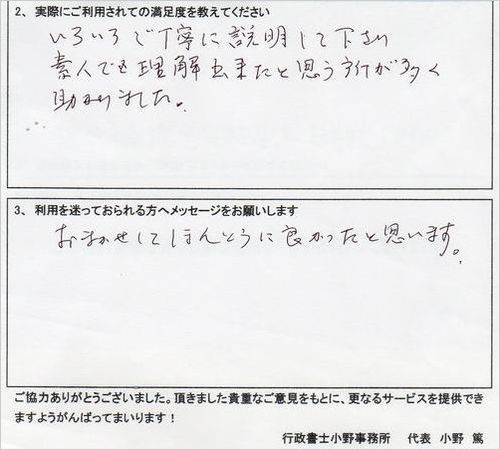 2、実際にご利用されての満足度を教えてください
いろいろご丁寧に説明して下さり
素人でも理解出来たと思う所が多く
助かりました。
3、利用を迷っておられる方へメッセージをお願いします
おまかせしてほんとうに良かったと思います。
ご協力ありがとうございました。頂きました貴重なご意見をもとに、更なるサービスを提供でき
ますようがんばってまいります！
行政書士小野事務所　代表 小野 篤